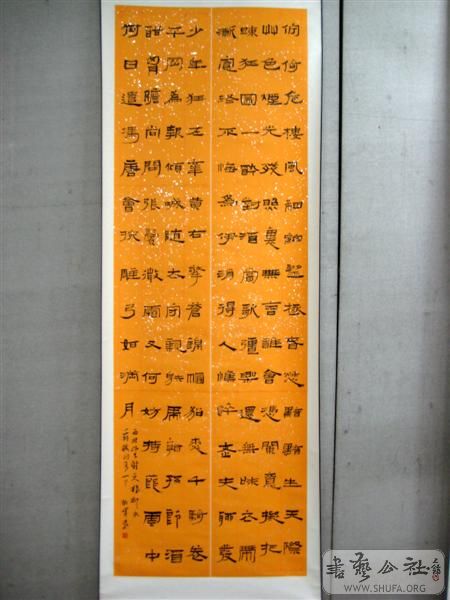 佇倚危樓風細細望極春愁黯黯生天際
艸色煙光殘照裏無言誰會憑闌意擬把
疎狂圖一醉對酒當歌彊樂還無味衣帶
漸寬終不悔為伊消得人憔悴老夫聊發
少年狂左牽黃右擎蒼錦帽貂裘千騎卷
平岡為報傾城随太守親射虎看孫郎酒
酣胷膽尚開張鬢微霜又何妨持節雲中
何日遣馮唐會挽雕弓如滿月
西北望射天狼柳永
書藝公社
WWW.SHUFA.ORG